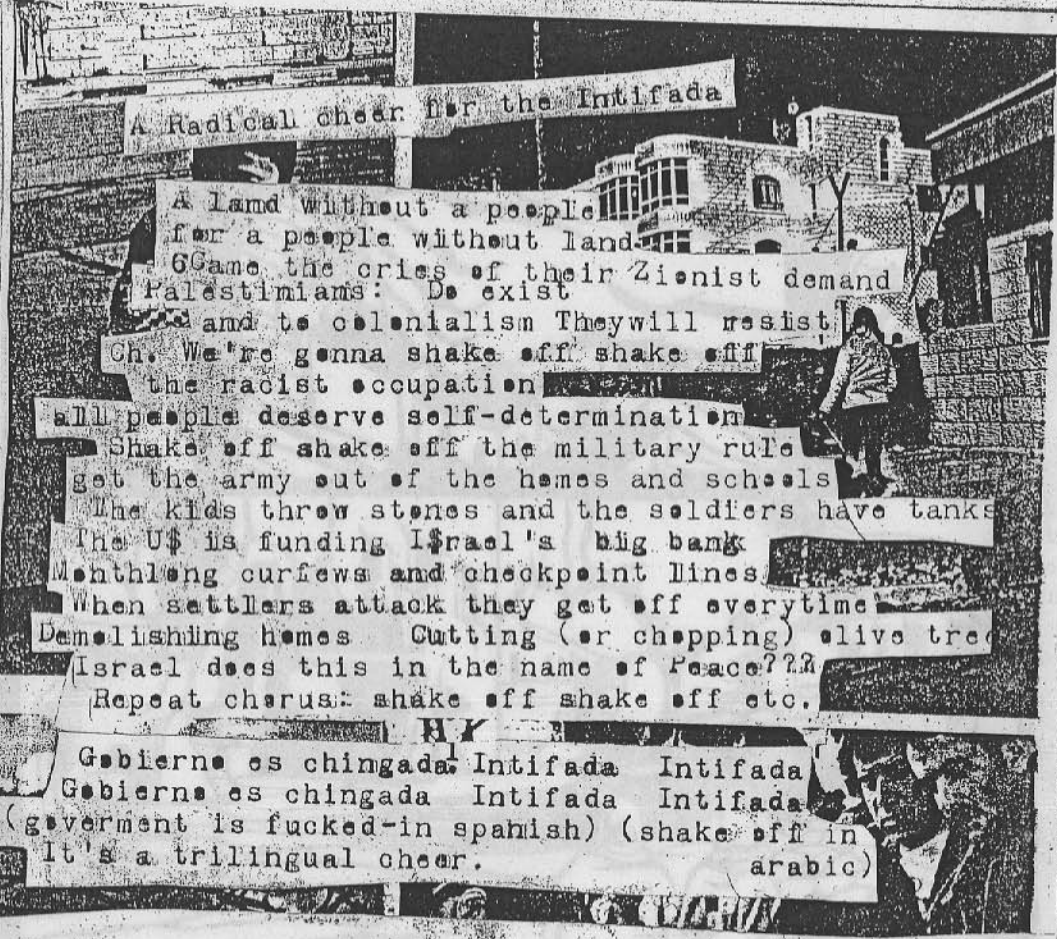 A Radical cheer for the Intifada
A Land without a people
for a people without land
6Came the cries of their Zionist demand
Palestinians: Do exist
and to colonialism Theywill resist
Ch. We're gonna shake off shake off
the racist occupation
all people deserve self-determination
Shake off shake off the military rule
get the army out of the homes and schools
The kids throw stones and the soldiers have tanks
The U$ is funding I$rael's big bank
Monthlong curfews and checkpoint lines
When settlers attack they get off everytime
Demolishing homes Cutting (or chopping) olive tree
Israel does this in the name of Peace???
Repeat chorus: shake off shake off etc.
Gobierno es chingada! Intifada Intifada
Gobierno es chingada Intifada Intifada
(goverment is fucked-in spanish) (shake off in
It's a trilingual cheer. arabic)